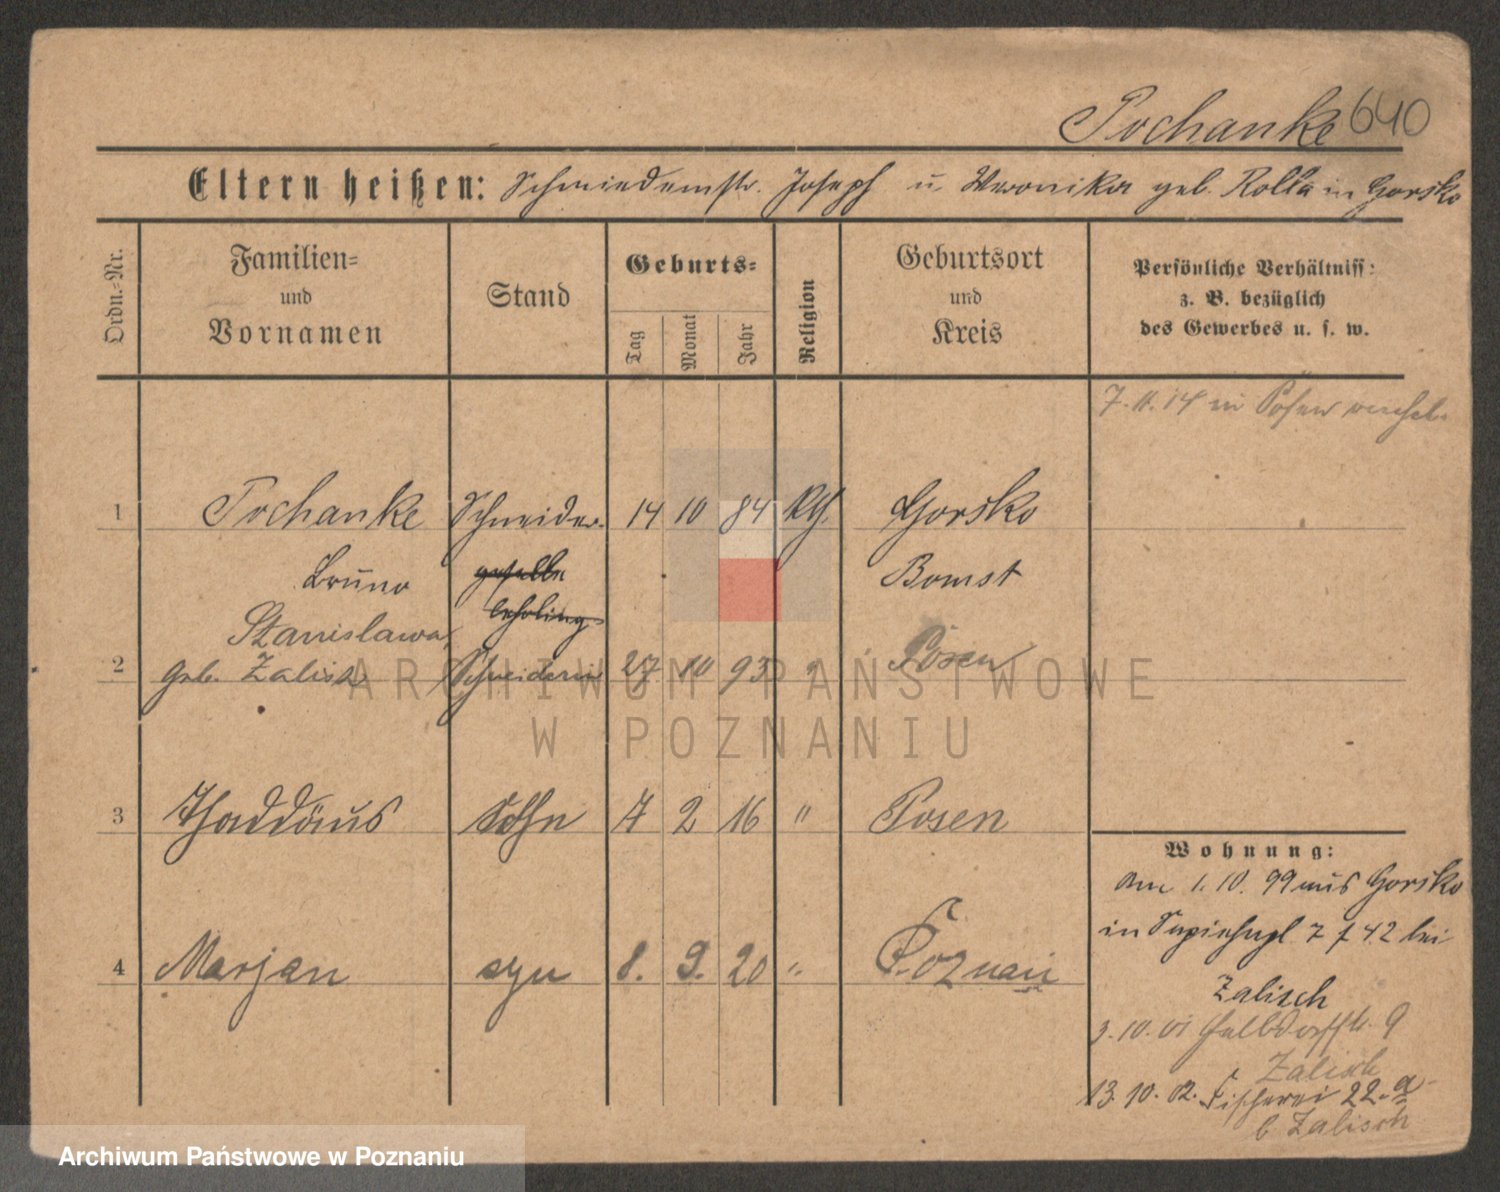 Pochanke 640
Eltern heißen: Schmiedemstr. Joseph u. Weronika geb. Rolla in Gorsko
Ordn.-Nr.
Familien-
und
Vornamen
Stand
Geburts-
Tag
Monat
Jahr
Religion
Geburtsort
und
Kreis
Persönliche Verhältniss:
z. B. bezüglich
des Gewerbes u. s. w.
7.11.14 in Posen verehel.
1 Pochanke Schneider- 14 10 84 Kth. Gorsko
Bruno geselle Bomst
lehrling
Stanislawa,
2 geb. Zalisz Schneiderin 27 10 93 " Posen
3 Thaddäus Sohn 7 2 16 " Posen
Wohnung:
Am 1. 10. 99 aus Gorsko
in Sapiehapl 7 f 42 bei
4 Marjan syn 8. 9. 20 " Poznań
Zalisch
3.10.01 Halbdorffstr. 9
Zalisch
13.10.02. Fischerei 22.a
b Zalisch
ARCHIWUM PAŃSTWOWE
W POZNANIU
Archiwum Państwowe w Poznaniu